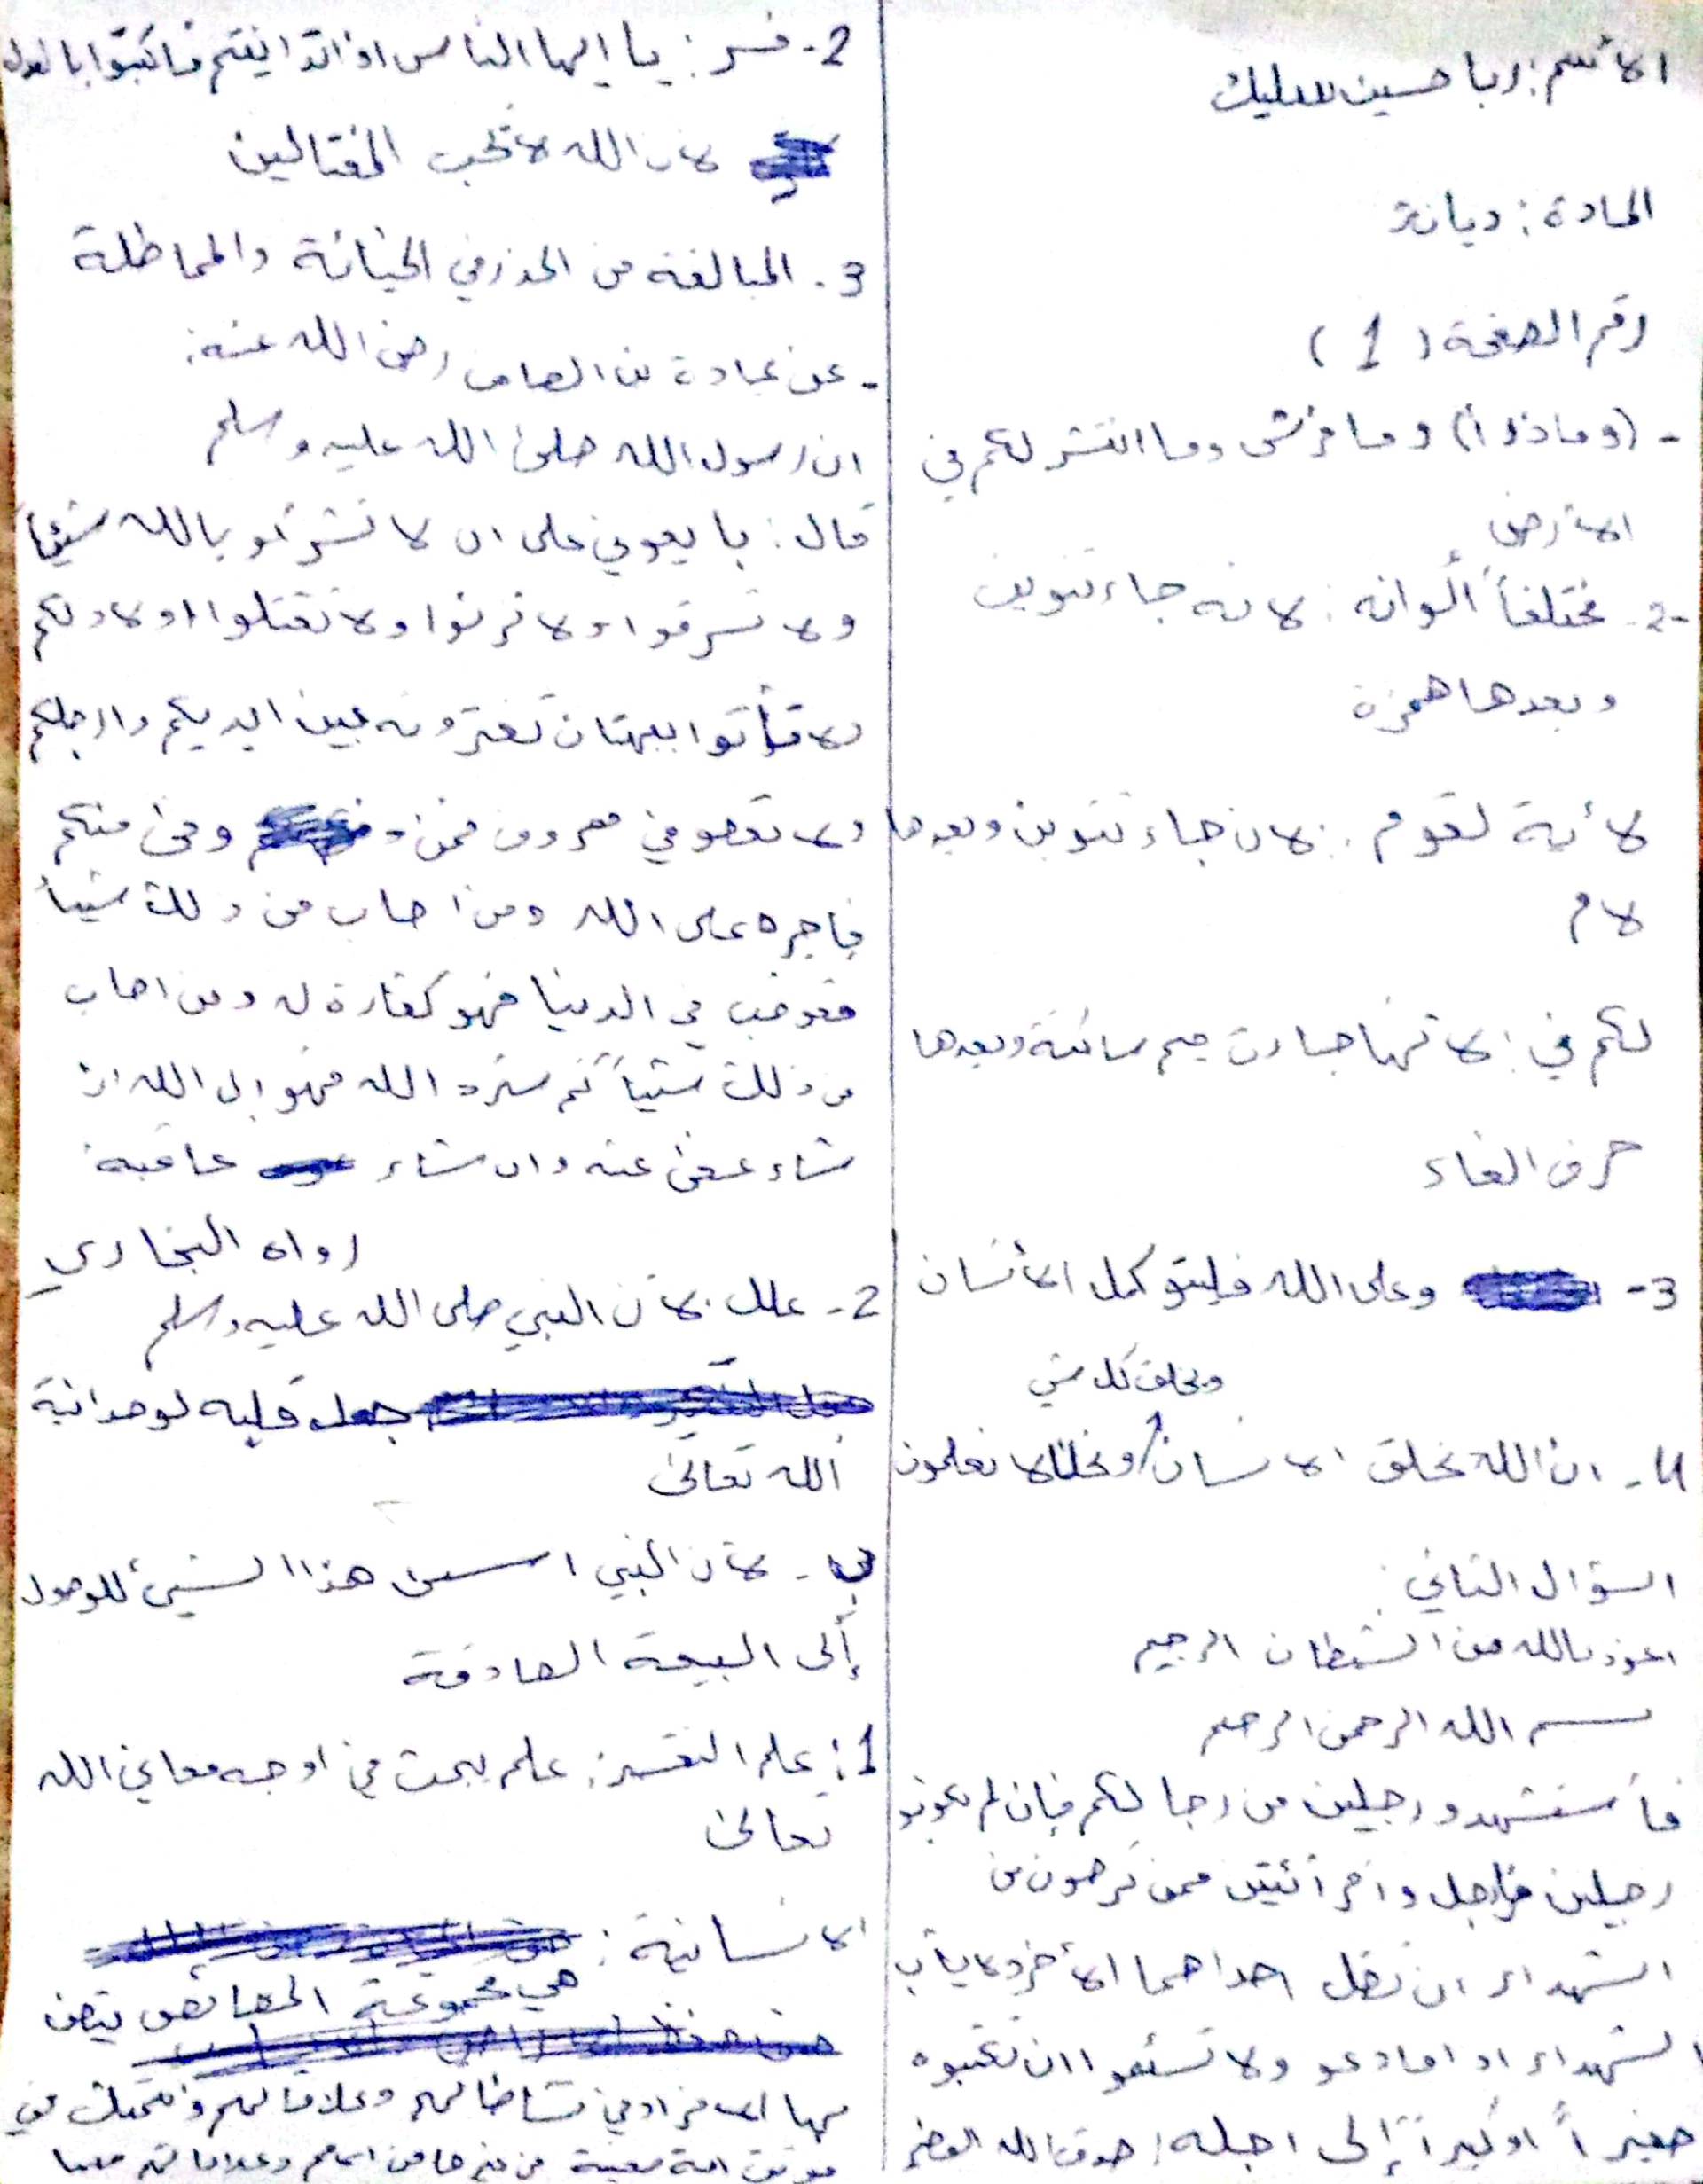 الأسم: ربا حسين
المادة: ديانة
رقم الصفحة (1)
- (وماذرأ) وما فرش وما انتشر لكم في
الأرض
2- مختلفاً ألوانه: لانه جاء تنوين
وبعدها همزة
لأية لقوم: لان جاء تنوين وبعدها
لام
لكم في: لانها جاءت ميم ساكنة وبعدها
حرف الفاء
3- وعلى الله فليتوكل الأنسان
ويخلق كل شي
4- ان الله يخلق الانسان / لا تعلمون
السؤال الثاني:
اعوذ بالله من الشيطان الرجيم
بسم الله الرحمن الرحيم
فأستشهدو رجلين من رجالكم فإن لم يكونو
رجلين فرجل وأمرأتين ممن ترضون من
الشهداء ان تضل احداهما الأخرى ولا يأب
الشهداء اذا مادعو ولا تسئموا ان تكتبوه
صغيراً او كبيراً إلى اجله: صدق الله العظيم
2- فسر: يا ايها الناس اذا تداينتم فاكتبوا بالعدل
لان الله لا يحب المختالين
3. المبالغة من الحذر في الخيانة والمماطلة
- عن عبادة بن الصامت رضي الله عنه:
ان رسول الله صلى الله عليه وسلم
قال: بايعوني على ان لا تشركو بالله شيئاً
ولا تسرقوا ولا تزنوا ولا تقتلوا اولادكم
ولا تأتوا ببهتان تفترونه بين ايديكم وارجلكم
ولا تعصو في معروف فمن وفى منكم
فاجره على الله ومن اصاب من ذلك شيئاً
فعوقب في الدنيا فهو كفارة له ومن اصاب
من ذلك شيئاً ثم ستره الله فهو إلى الله ان
شاء عفى عنه وان شاء عاقبه
رواه البخاري
2- علل: لأن النبي صلى الله عليه وسلم
جعل قلبه لوحدانية
الله تعالى
ب- لأن النبي اسس هذا الشيئ للوصول
إلى البيعة الصادقة
1: علم التفسير: علم يبحث في اوجه معاني الله
تعالى
الانسانية:
هي مجموعة الخصائص
بها الأفراد في نشاطاتهم وعلاقاتهم وتتمثل في
امة معينة عن غيرها من الامم وعلاقاتهم